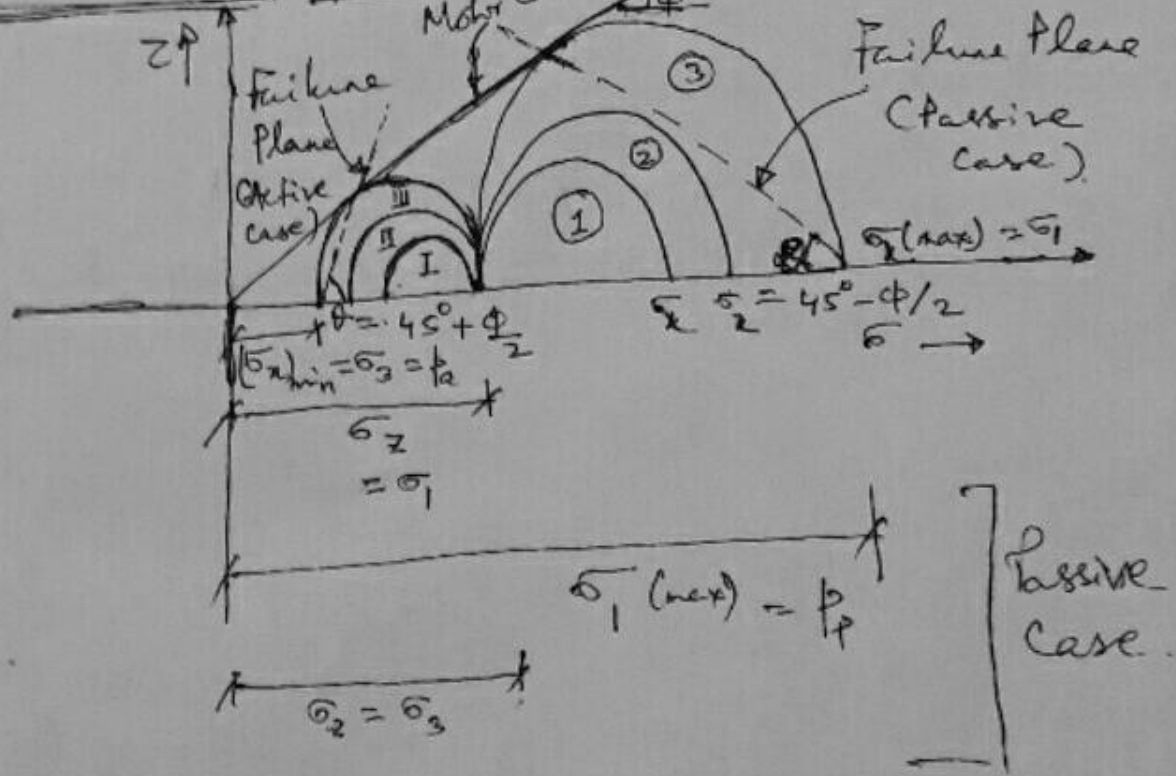 τ↑
Mohr
φ
Failure
Plane
(Active
case)
Failure Plane
(Passive
Case)
③
②
①
III
II
I
σx (max) = σ1
σx σx = 45° - φ/2
σ →
θ = 45° + φ/2
(σx)min = σ3 = pa
σz
= σ1
σ1 (max) = Pp
Passive
Case.
σz = σ3